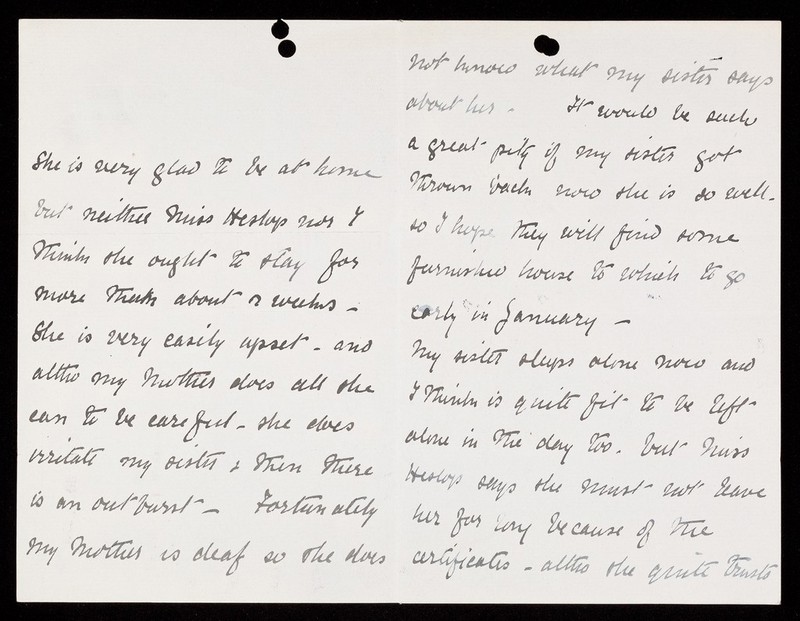 She is very glad to be at home
but neither Miss Heslop nor I
think she ought to stay for
more than about 2 weeks –
She is very easily upset – and
altho my Mother does all she
can to be careful – she does
irritate my sister & then there
is an outburst – Fortunately
my Mother is deaf so she does
not know what my sister says
about her – It would be such
a great pity if my sister got
thrown back now she is so well –
so I hope they will find some
furnished house to which to go
early in January –
My sister sleeps alone now and
I think is quite fit to be left
alone in the day too. but Miss
Heslop says she must not leave
her for long because of the
certificates – altho she quite trusts